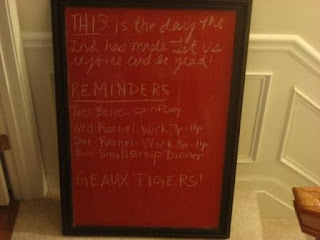 THIS is the day the
Lord has made Let us
rejoice and be glad!
REMINDERS
Tues- Spirit Day
Wed-Rachel-Work 7p-11p
Sat-Rachel-Work 3p-11p
Sun-Small Group Dinner
GEAUX TIGERS!